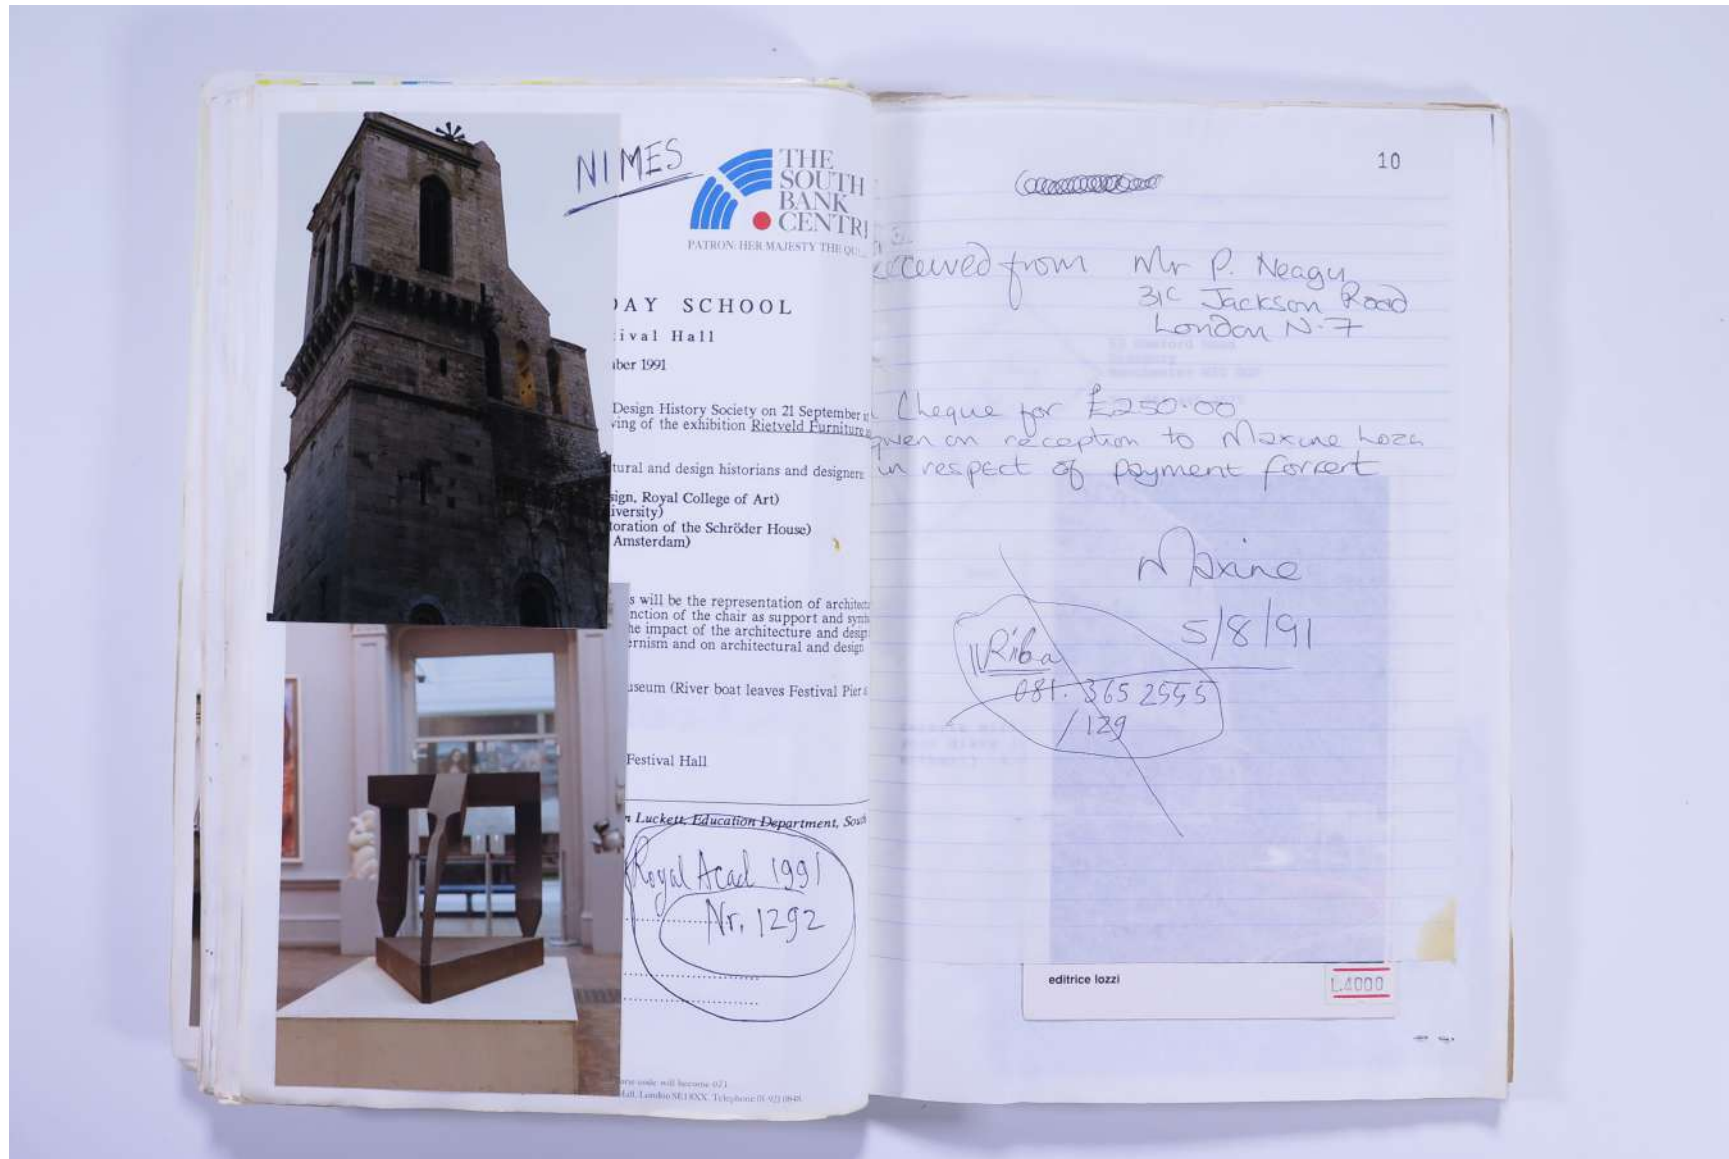 NIMES
THE
SOUTH
BANK
CENTR
PATRON: HER MAJESTY THE QU
AY SCHOOL
ival Hall
ber 1991
Design History Society on 21 September
ving of the exhibition Rietveld Furniture
tural and design historians and designers
sign, Royal College of Art)
iversity)
toration of the Schröder House)
Amsterdam)
s will be the representation of architect
nction of the chair as support and symb
he impact of the architecture and desig
ernism and on architectural and design
useum (River boat leaves Festival Pier
Festival Hall
n Luckett, Education Department, Sout
Royal Acad 1991
Nr. 1292
code will become 071
Hall, London SE1 8XX. Telephone 01-921 0848
10
eceived from Mr P. Neagu
31c Jackson Road
London N.7
Cheque for £250.00
given on reception to Maxine Loza
in respect of payment for rent
Maxine
5/8/91
Riba
081. 365 2555
/129
editrice lozzi
L.4000